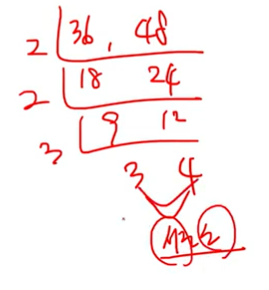 2 36, 48
2 18 24
3 9 12
3 4